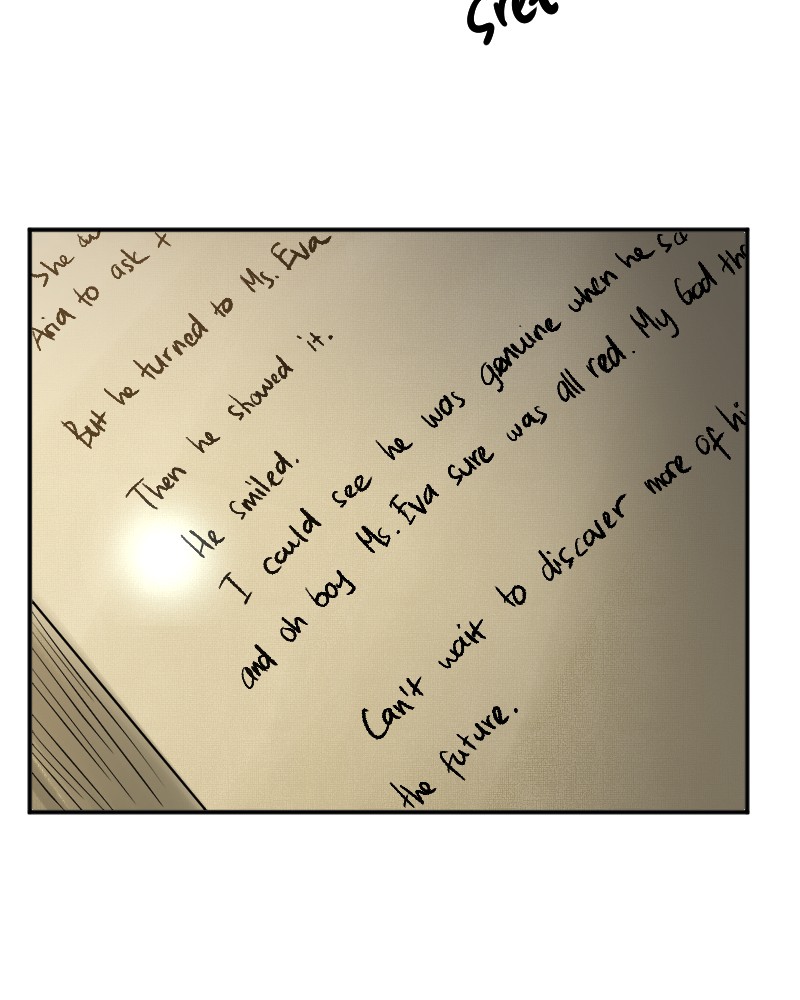 She
Aria to ask
But he turned to Ms. Eva
Then he showed it.
He smiled.
I could see he was genuine when he
and oh boy Ms. Eva sure was all red. My God
Can't wait to discover more of
the future.